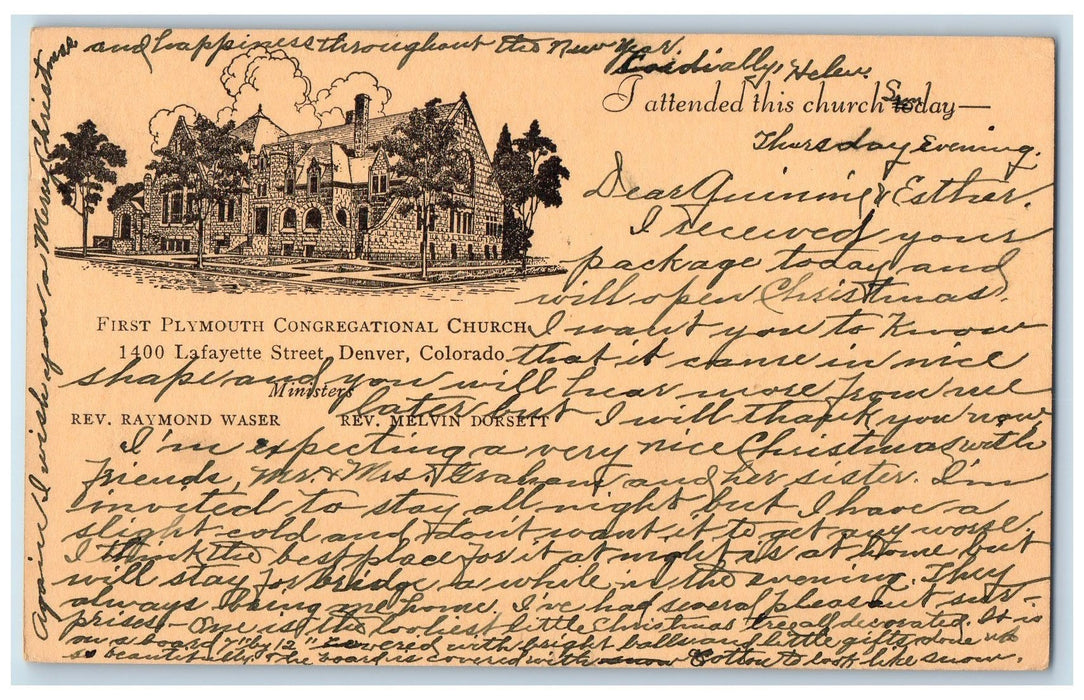 I attended this church Sun today—
Thursday Evening.
Dear Quining & Esther.
I received your
package today and
will open Christmas.
I want you to know
that it came in nice
shape and you will hear more from me
later but I will thank you now
I'm expecting a very nice Christmas with
friends, Mr. & Mrs. Graham and her sister. I'm
invited to stay all night but I have a
slight cold and don't want it to get any worse.
I think the best place for it at night is at home but
will stay for bridge a while in the evening. They
always bring me home. I've had several pleasant sur-
prises - One is the loveliest little Christmas tree all decorated. It is
on a board 7" by 12" covered with bright balls and little gifts done up
so beautifully. The board is covered with snow Cotton to look like snow.
Again I wish you a Merry Christmas
and happiness throughout the New Year.
Cordially, Helen.
FIRST PLYMOUTH CONGREGATIONAL CHURCH
1400 Lafayette Street, Denver, Colorado
Ministers
REV. RAYMOND WASER REV. MELVIN DORSETT